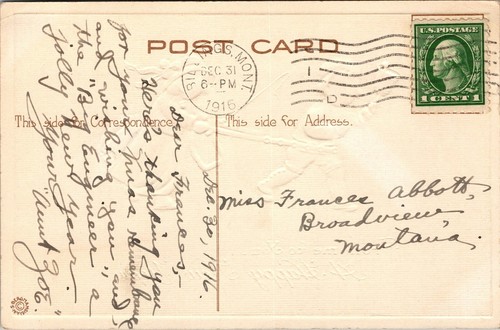 POST CARD
BILLINGS, MONT.
DEC 31
6 - PM
1916
U.S. POSTAGE
1 CENT 1
This side for Correspondence.
This side for Address.
Dec. 30, 1916.
Dear Frances,-
Here's thanking you
for your Xmas remembrance
and wishing you, and
the "B. Engineer" a
Jolly New Year.
Your "Aunt Zoe."
Miss Frances Abbott,
Broadview,
Montana.